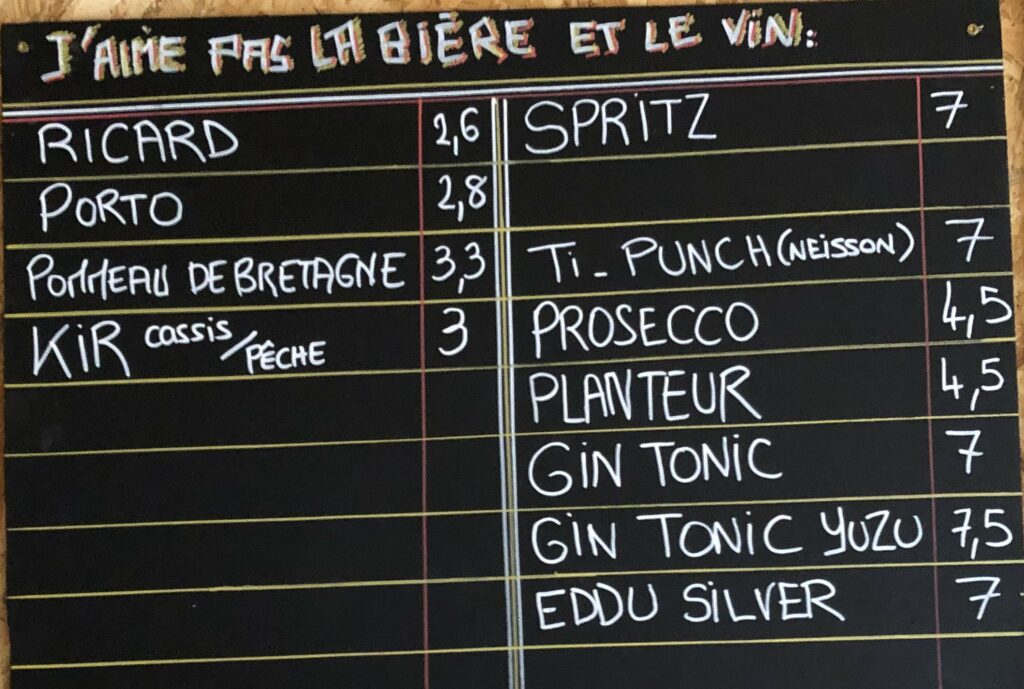 J'AIME PAS LA BIÈRE ET LE VIN:
RICARD 2,6
PORTO 2,8
POMMEAU DE BRETAGNE 3,3
KIR cassis/PÊCHE 3
SPRITZ 7
Ti-PUNCH (NEISSON) 7
PROSECCO 4,5
PLANTEUR 4,5
GIN TONIC 7
GIN TONIC YUZU 7,5
EDDU SILVER 7